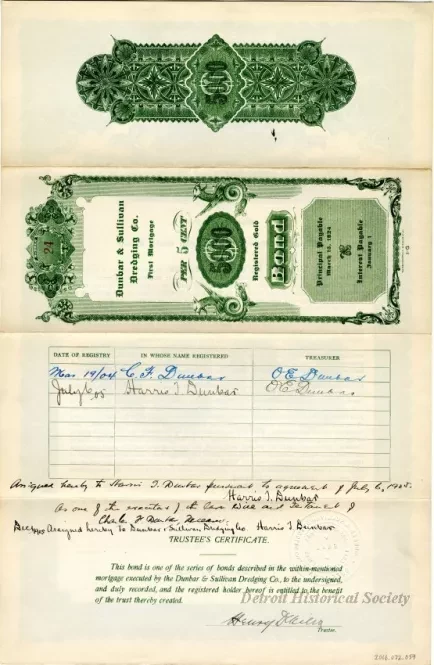 5000
24
Dunbar & Sullivan
Dredging Co.
First Mortgage
PER 5 CENT
5000
Registered Gold
Bond
Principal Payable
March 15, 1924
Interest Payable
January 1
DATE OF REGISTRY IN WHOSE NAME REGISTERED TREASURER
Mar 19/04 C. F. Dunbar O E Dunbar
July 6/05 Harris T. Dunbar O E Dunbar
Assigned hereby to Harris T. Dunbar pursuant to agreement of July 6, 1905.
Harris T. Dunbar
as one of the executors of the Last Will and Testament of
Charles F Dunbar deceased.
Assigned hereby to Dunbar & Sullivan Dredging Co. Harris T. Dunbar
TRUSTEE'S CERTIFICATE.
This bond is one of the series of bonds described in the within-mentioned
mortgage executed by the Dunbar & Sullivan Dredging Co., to the undersigned,
and duly recorded, and the registered holder hereof is entitled to the benefit
of the trust thereby created.
Detroit Historical Society
Henry
Trustee.